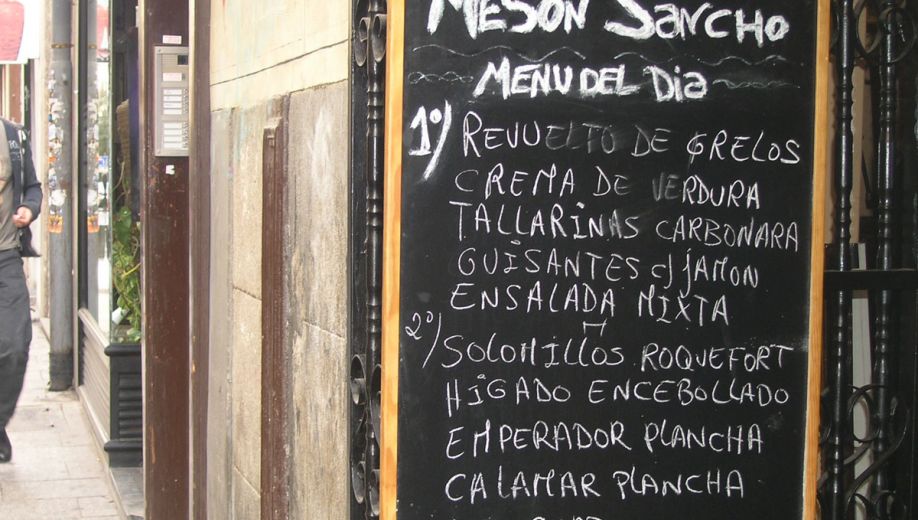 MESON SANCHO
MENU DEL DIA
1º) REVUELTO DE GRELOS
CREMA DE VERDURA
TALLARINAS CARBONARA
GUISANTES C/ JAMON
ENSALADA MIXTA
2º) SOLOMILLOS ROQUEFORT
HIGADO ENCEBOLLADO
EMPERADOR PLANCHA
CALAMAR PLANCHA